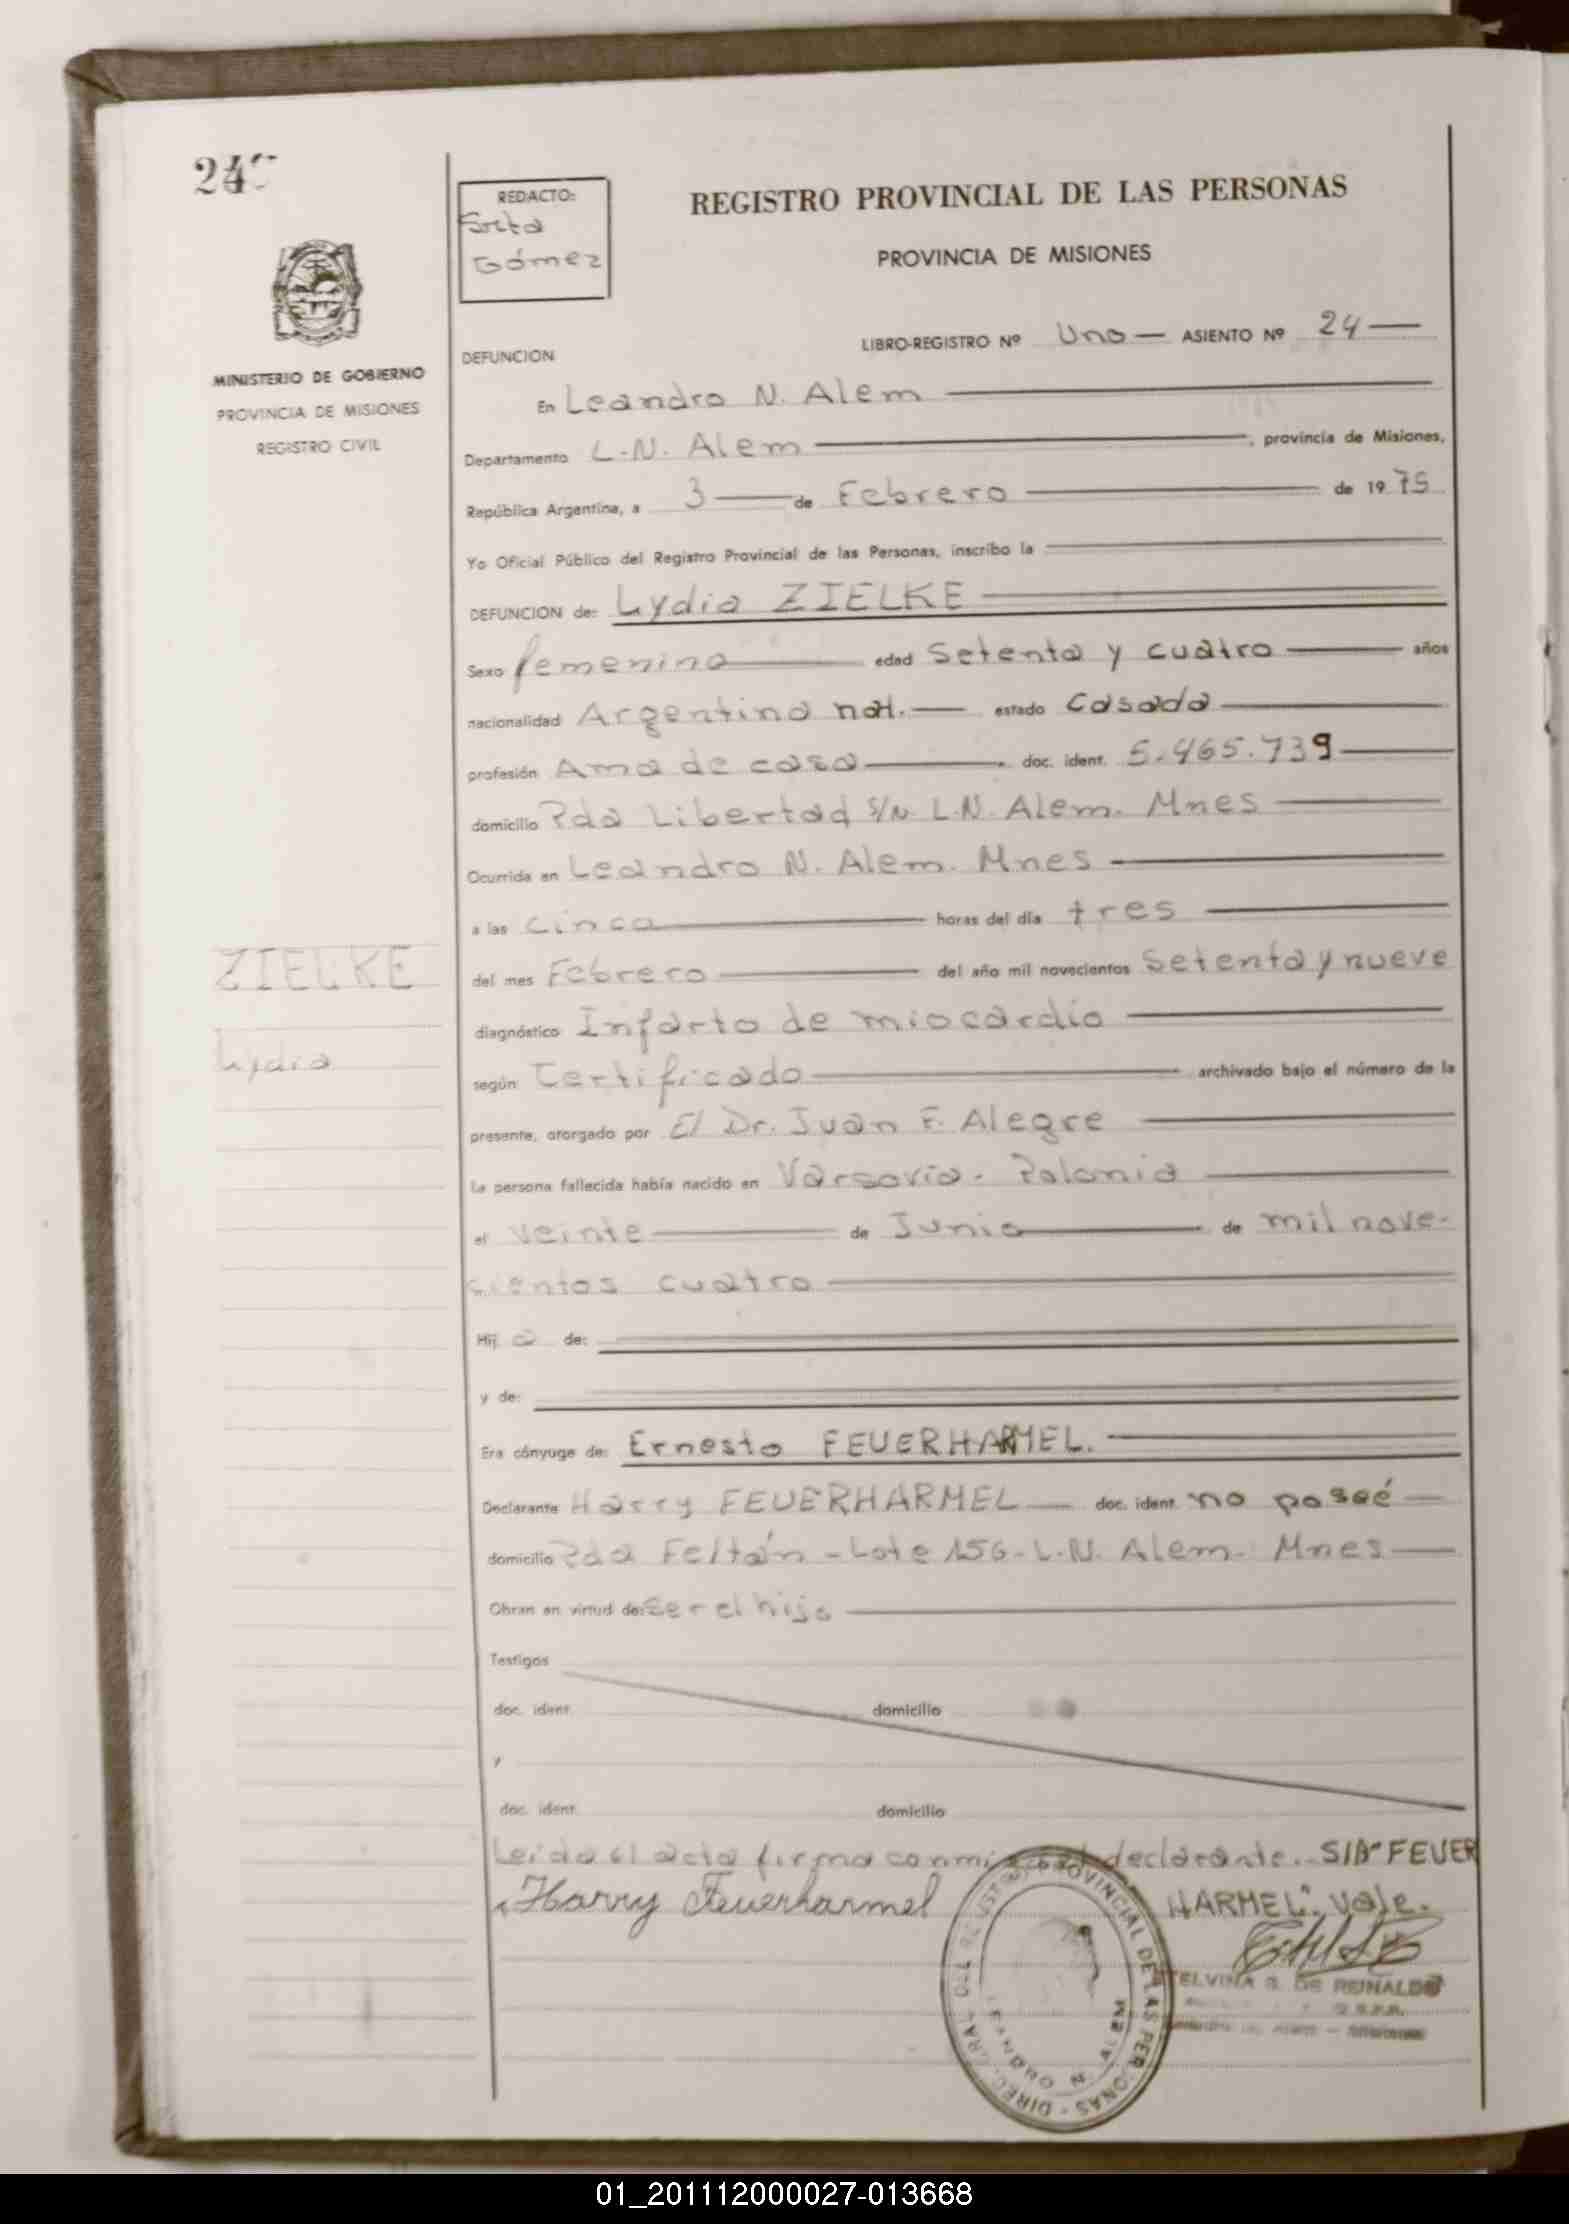 24
REDACTO:
Srta
Gómez
REGISTRO PROVINCIAL DE LAS PERSONAS
PROVINCIA DE MISIONES
MINISTERIO DE GOBIERNO
PROVINCIA DE MISIONES
REGISTRO CIVIL
LIBRO-REGISTRO Nº Uno — ASIENTO Nº 24 —
DEFUNCION
En Leandro N. Alem
Departamento L.N. Alem , provincia de Misiones,
República Argentina, a 3 de Febrero de 19 79
Yo Oficial Público del Registro Provincial de las Personas, inscribo la
DEFUNCION de: Lydia ZIELKE
Sexo femenino edad Setenta y cuatro años
nacionalidad Argentina nat. — estado Casada
profesión Ama de casa doc. ident. 5.465.739
domicilio Pda Libertad S/N. L.N. Alem. Mnes
Ocurrida en Leandro N. Alem. Mnes
a las cinco horas del día tres
del mes Febrero del año mil novecientos setenta y nueve
ZIELKE
Lydia
diagnóstico Infarto de miocardio
según Certificado archivado bajo el número de la
presente, otorgado por El Dr. Juan F. Alegre
La persona fallecida había nacido en Varsovia - Polonia
el veinte de Junio de mil nove-
cientos cuatro
Hij a de:
y de:
Era cónyuge de: Ernesto FEUERHARMEL.
Declarante Harry FEUERHARMEL doc. ident. no poseé
domicilio Pda Feltán - Lote 156 - L.N. Alem. Mnes
Obran en virtud de: ser el hijo
Testigos
doc. ident. domicilio
y
doc. ident. domicilio
Leída el acta firma conmigo el declarante. S/R "FEUER
Harry Feuerharmel HARMEL". Vale.
DIREC. GRAL DEL REGISTRO PROVINCIAL DE LAS PERSONAS
LEANDRO N. ALEM
TELVINA S. DE REINALDO
01_201112000027-013668